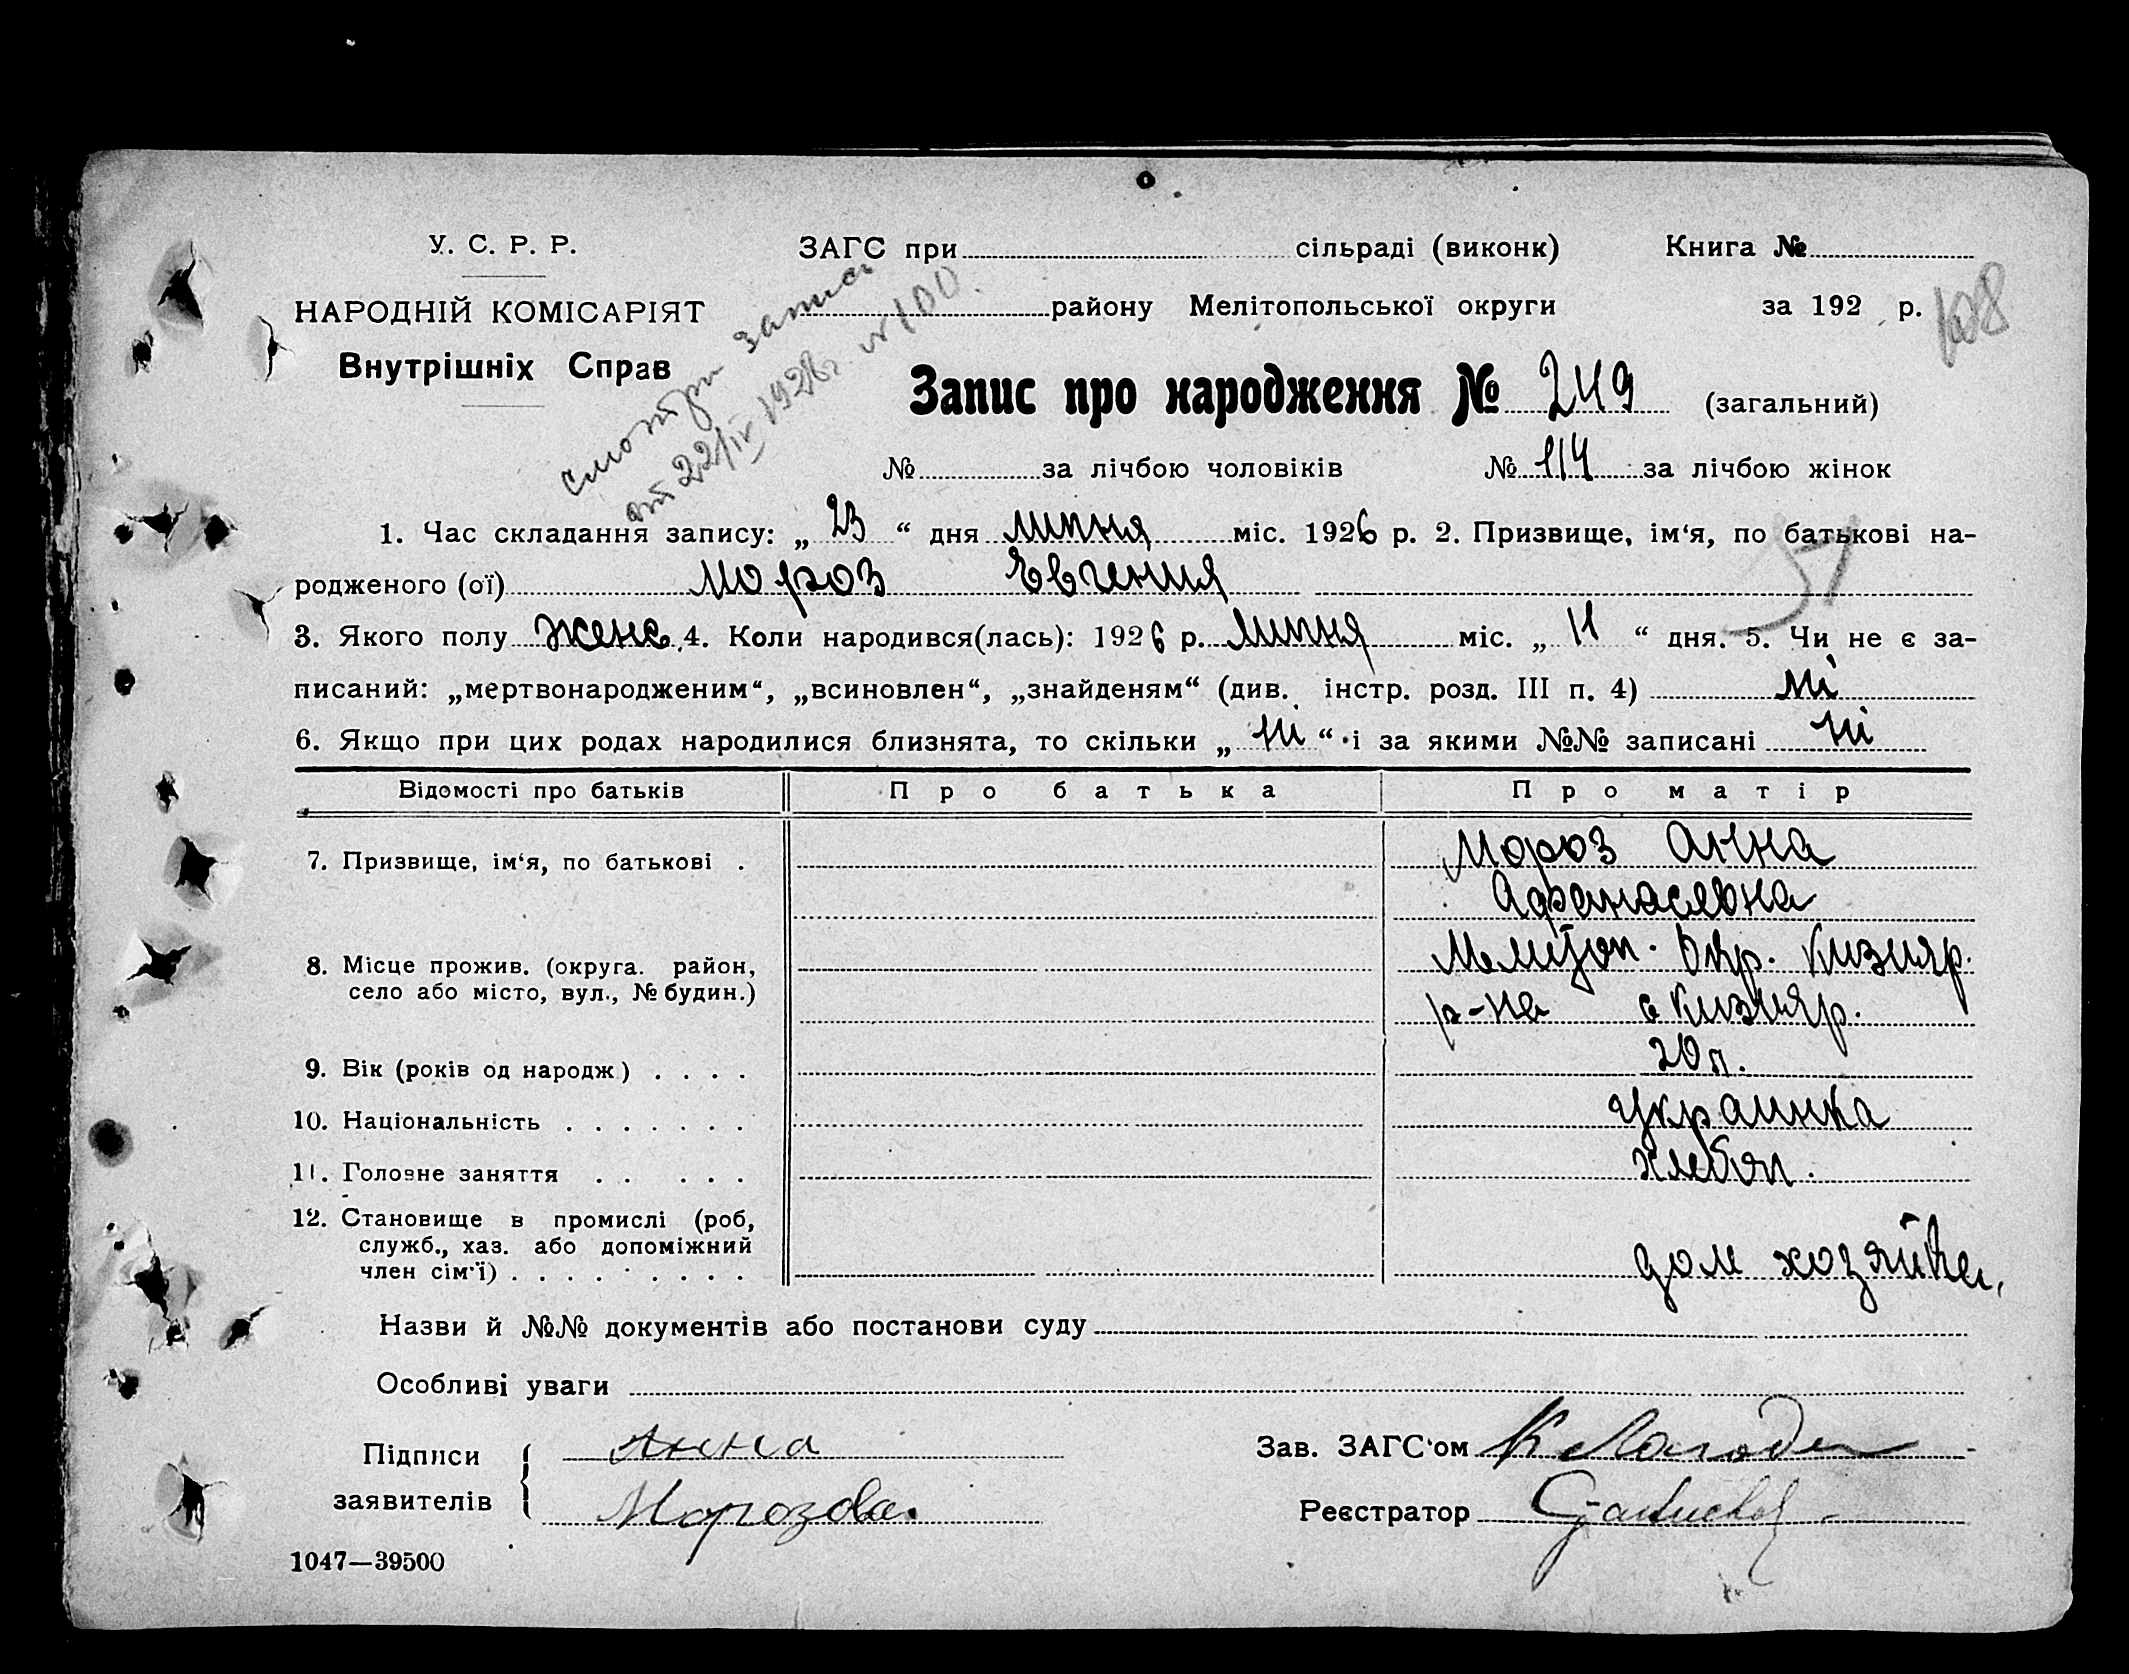 У. С. Р. Р.
НАРОДНІЙ КОМІСАРІЯТ
Внутрішніх Справ
ЗАГС при сільраді (виконк) Книга №
району Мелітопольської округи за 192 р.
108
смотри запись
от 22/IV 1928г. № 100.
Запис про народження № 249 (загальний)
№ за лічбою чоловіків № 114 за лічбою жінок
51
1. Час складання запису: „ 23 “ дня липня міс. 1926 р. 2. Призвище, ім‘я, по батькові на-
родженого (ої) Мороз Евгения
3. Якого полу женс. 4. Коли народився(лась): 1926 р. липня міс. „ 11 “ дня. 5. Чи не є за-
писаний: „мертвонародженим“, „всиновлен“, „знайденям“ (див. інстр. розд. III п. 4) ні
6. Якщо при цих родах народилися близнята, то скільки „ ні “ і за якими №№ записані ні
Відомості про батьків Про батька Про матір
7. Призвище, ім‘я, по батькові . Мороз Анна
Афанасевна
8. Місце прожив. (округа. район, Мелітоп. Окр. Кизияр.
село або місто, вул., № будин.) р-на с Кизияр.
9. Вік (років од народж.) . . . . 20 л.
10. Національність . . . . . . . украинка
11. Головне заняття . . . . . хлебоп.
12. Становище в промислі (роб,
служб., хаз. або допоміжний
член сім‘ї) . . . . . . . . . дом хозяйка.
Назви й №№ документів або постанови суду
Особливі уваги
Підписи заявителів { Анна
Морозова.
Зав. ЗАГС‘ом
Реєстратор
1047—39500